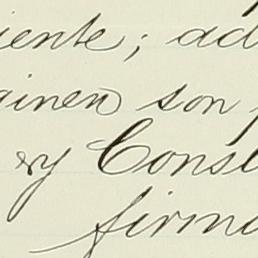 iente; ad
ginen son
ey Const
firma